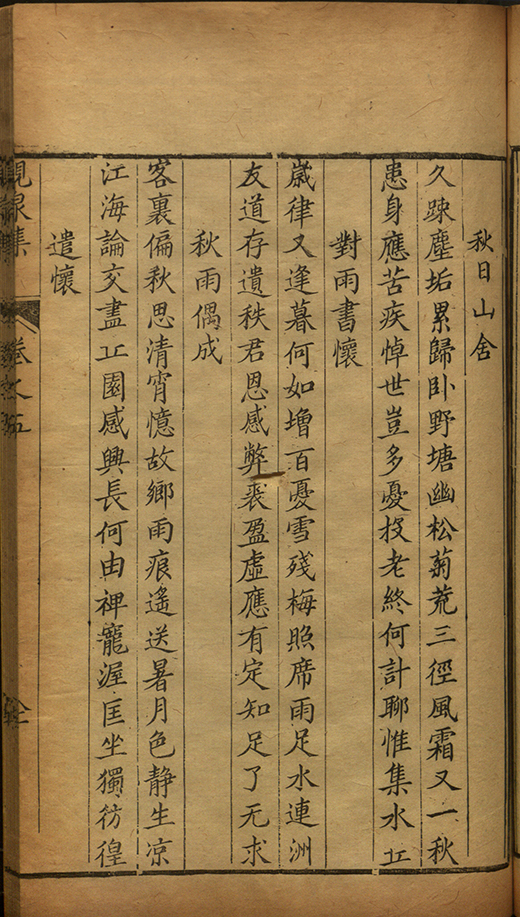 秋日山舍
久踈塵垢累歸卧野塘幽松菊荒三徑風霜又一秋
患身應苦疾悼世豈多憂投老終何計聊惟集水丠
對雨書懷
歲律又逢暮何如增百憂雪殘梅照席雨足水連洲
友道存遺秩君恩感弊裘盈虛應有定知足了无求
秋雨偶成
客裏偏秋思清宵憶故鄉雨痕遙送暑月色靜生凉
江海論交盡丠園感興長何由禆寵渥匡坐獨彷徨
遣懷
集 卷之五